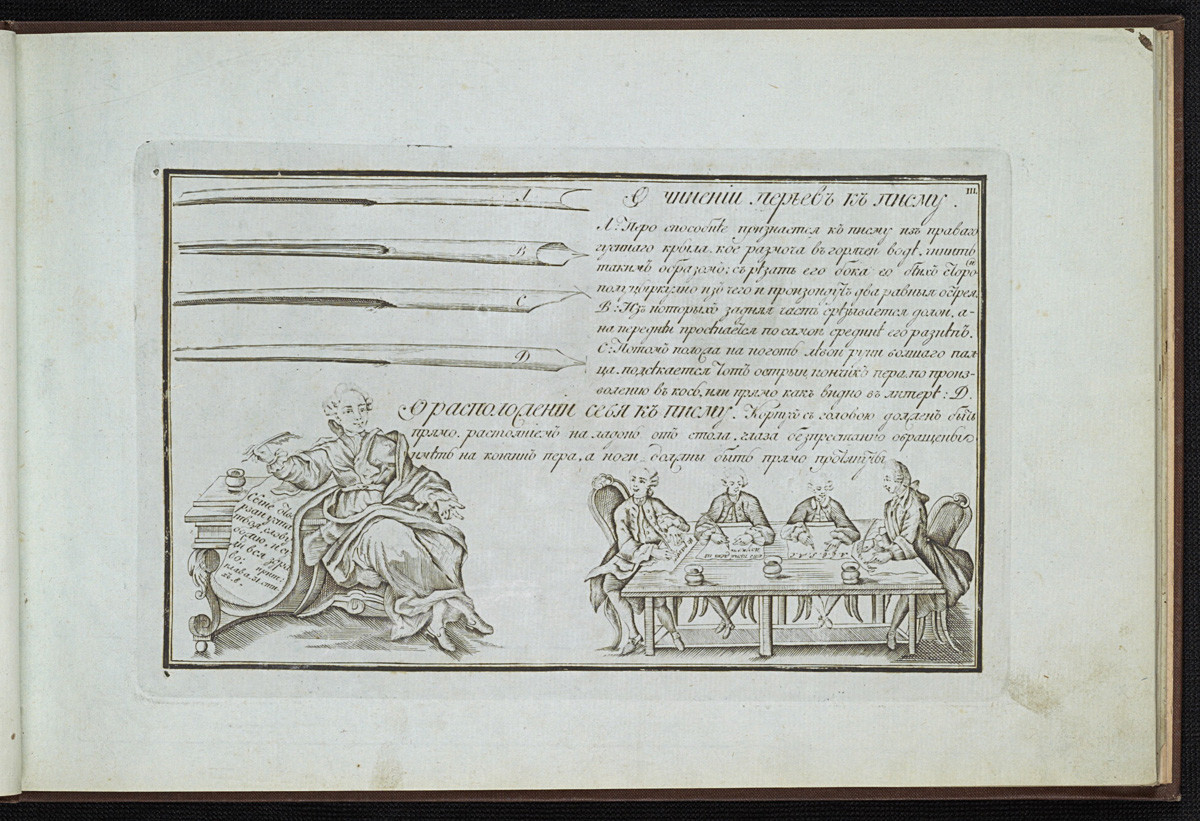 III.
О чинении перьевъ къ писму.
А: Перо способнѣе признается къ писму изъ праваго
гусинаго крыла. кое размоча въ горячеи водѣ, чинить
такимъ образомъ: срѣзать его бока со обѣихъ сторонъ
полуциркулно изъ чего и произоидутъ два равныя острея.
В: Изъ которыхъ задняя часть срѣзывается долои, а-
на переднеи по самои срединѣ его
С: Потомъ положа на ноготь лѣвои руки болшаго пал-
ца. подсѣкается тотъ острыи кончикъ пера. по произ-
волению въ кось, или прямо какъ видно въ литерѣ: D.
О расположении себя къ писму. Корпусъ съ головою долженъ быть
прямо. растояниемъ на ладонь отъ стола. глаза безпрестанно обращены
имѣть на кончикъ пера, а ноги должны быть прямо протянуты
A
B
C
D